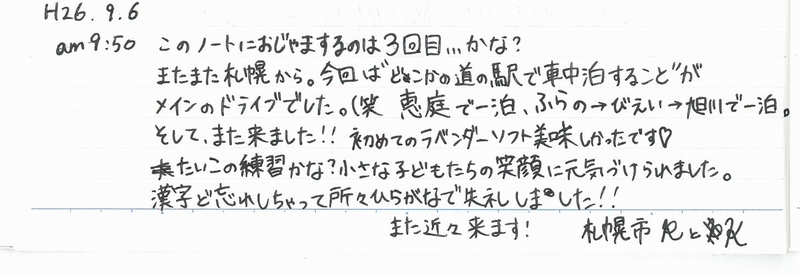 H26.9.6
am9:50 このノートにおじゃまするのは3回目...かな?
またまた札幌から。今回は"どこかの道の駅で車中泊すること"が
メインのドライブでした。(笑 恵庭で一泊、ふらの→びえい→旭川で一泊。
そして、また来ました!! 初めてのラベンダーソフト美味しかったです♡
たいこの練習かな?小さな子どもたちの笑顔に元気づけられました。
漢字ど忘れしちゃって所々ひらがなで失礼しました!!
また近々来ます! 札幌市 と